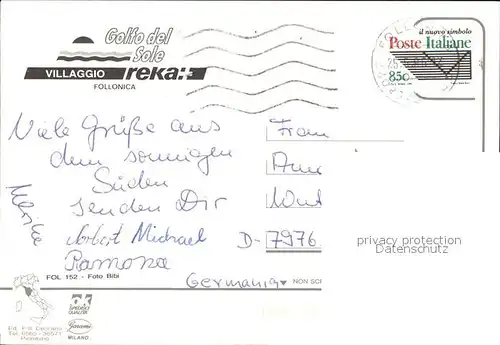 Golfo del
Sole
VILLAGGIO reka:+
FOLLONICA
il nuovo simbolo
Poste Italiane
850
Viele Grüße aus
dem sonnigen
Süden
senden Dir
Norbert Michael
Ramona
Frau
D-7976
Germania
privacy protection
Datenschutz
FOL 152 - Foto Bibi
NON SCR
MILANO